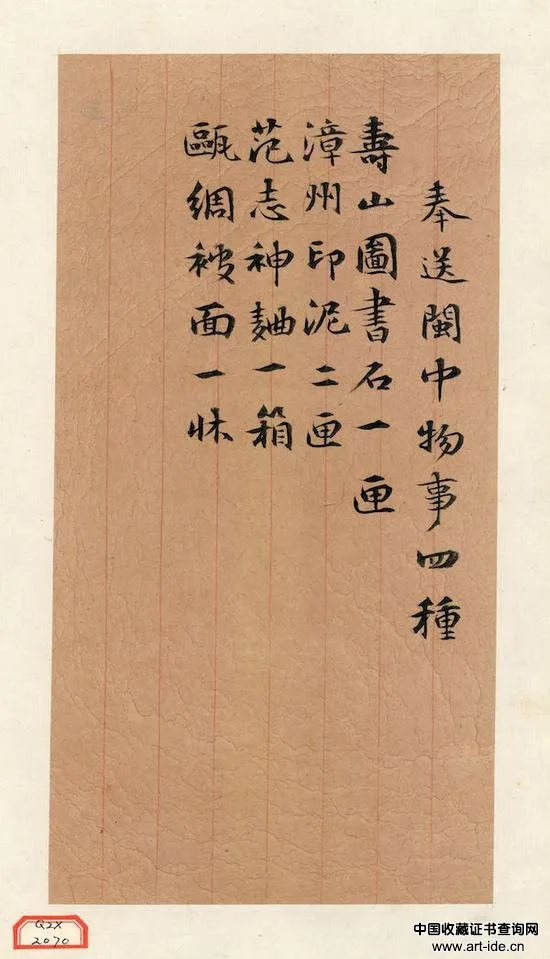 奉送閩中物事四種
壽山圖書石一匣
漳州印泥二匣
范志神麯一箱
甌綢被面一牀
Q2X
2070
中国收藏证书查询网
www.art-ide.cn